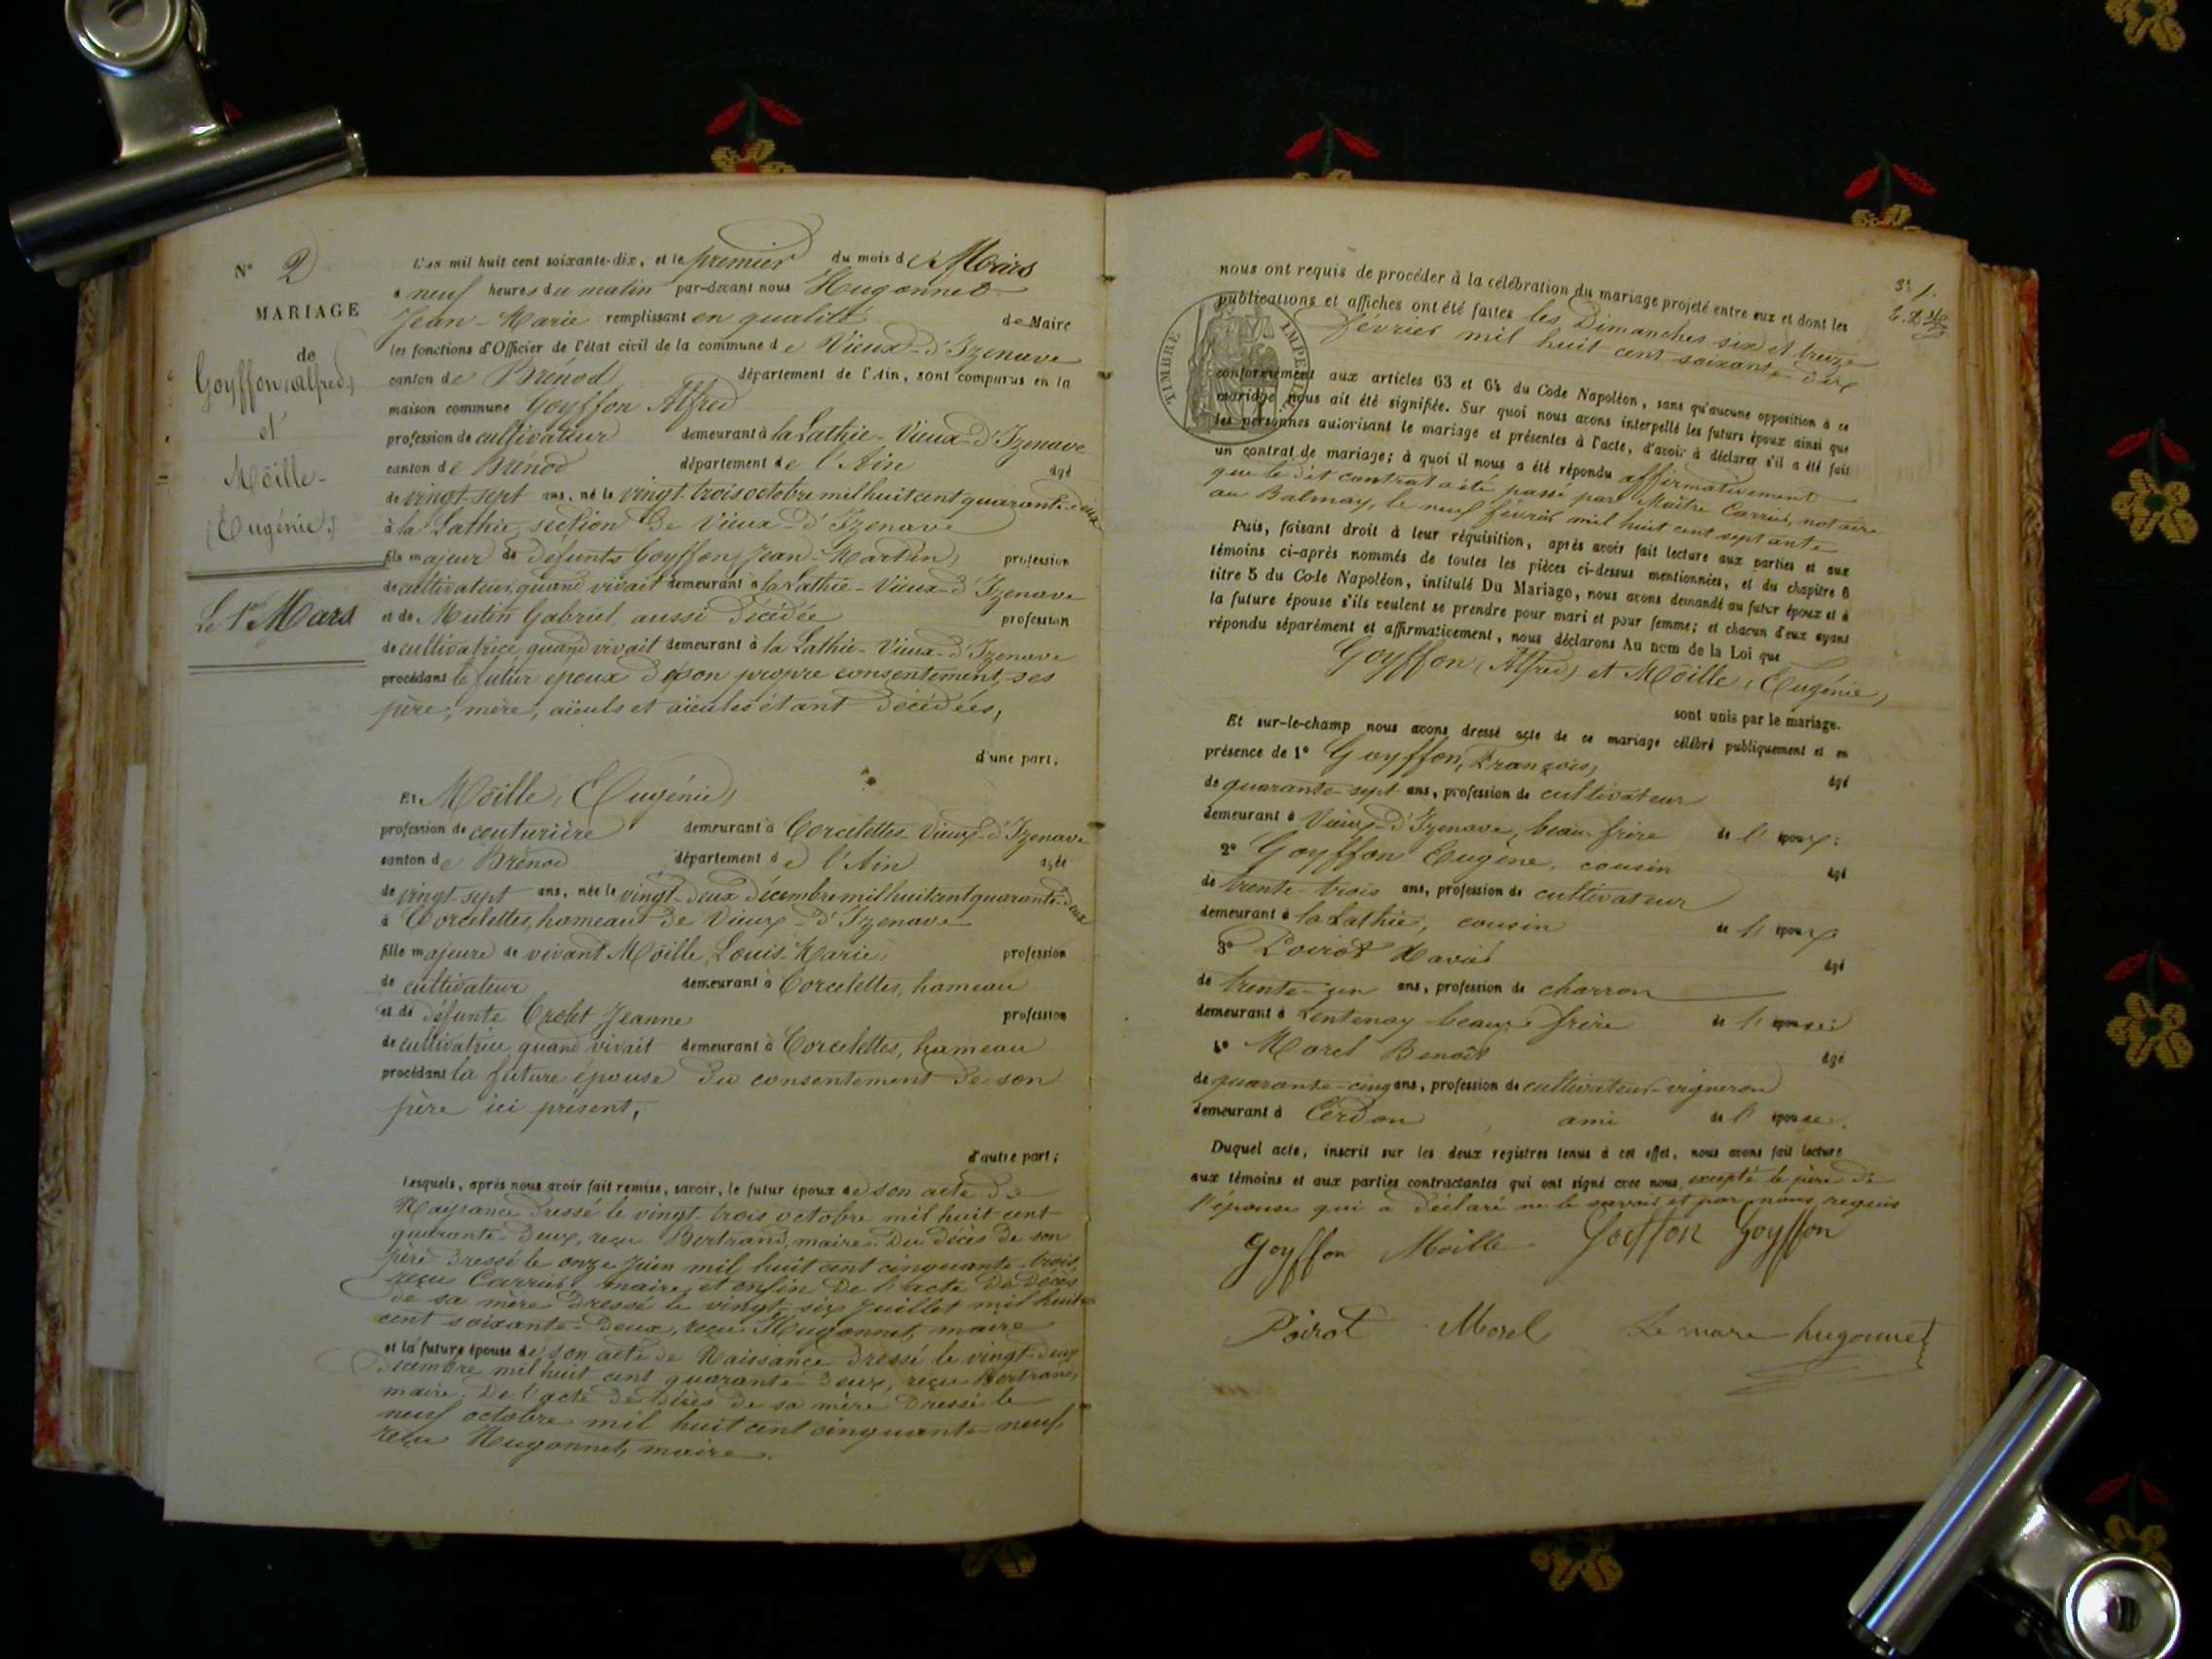 N° 2
MARIAGE
de
Goyffon (Alfred)
et
Möille
(Eugénie)
Le 1er Mars
L'an mil huit cent soixante-dix, et le premier du mois de Mars
à neuf heures du matin par-devant nous Hugonnet
Jean-Marie remplissant en qualité de Maire
les fonctions d'Officier de l'état civil de la commune de Vieux-d'Izenave
canton de Brénod département de l'Ain, sont comparus en la
maison commune Goyffon Alfred
profession de cultivateur demeurant à la Lathie-Vieux-d'Izenave
canton de Brénod département de l'Ain âgé
de vingt-sept ans, né le vingt-trois octobre mil huit cent quarante-deux
à la Lathie, section de Vieux-d'Izenave
fils majeur de défunts Goyffon (Jean-Martin) profession
de cultivateur, quand vivait demeurant à la Lathie-Vieux-d'Izenave
et de Mutin Gabriel, aussi décédée profession
de cultivatrice quand vivait demeurant à la Lathie-Vieux-d'Izenave
procédant le futur époux de son propre consentement, ses
père, mère, aïeuls et aïeules étant décédées,
d'une part;
Et Möille, (Eugénie)
profession de couturière demeurant à Corcelettes-Vieux-d'Izenave
canton de Brénod département de l'Ain âgée
de vingt-sept ans, née le vingt-deux décembre mil huit cent quarante-deux
à Corcelettes, hameau de Vieux-d'Izenave
fille majeure de vivant Möille, Louis-Marie, profession
de cultivateur demeurant à Corcelettes, hameau
et de défunte Crolet Jeanne profession
de cultivatrice quand vivait demeurant à Corcelettes, hameau
procédant la future épouse du consentement de son
père ici présent,
d'autre part;
Lesquels, après nous avoir fait remise, savoir, le futur époux de son acte de
Naissance dressé le vingt-trois octobre mil huit cent
quarante-deux, reçu Bertrand, maire. Du décès de son
père dressé le onze juin mil huit cent cinquante-trois,
reçu Carrier, maire, et enfin de l'acte de décès
de sa mère dressé le vingt-six juillet mil huit
cent soixante-deux, reçu Hugonnet, maire
et la future épouse de son acte de Naissance dressé le vingt-deux
décembre mil huit cent quarante-deux, reçu Bertrand,
maire. De l'acte de décès de sa mère dressé le
neuf octobre mil huit cent cinquante-neuf,
reçu Hugonnet, maire.
TIMBRE IMPERIAL
nous ont requis de procéder à la célébration du mariage projeté entre eux et dont les
publications et affiches ont été faites les Dimanches six et treize
février mil huit cent soixante-dix
conformément aux articles 63 et 64 du Code Napoléon, sans qu'aucune opposition à ce
mariage nous ait été signifiée. Sur quoi nous avons interpellé les futurs époux ainsi que
les personnes autorisant le mariage et présentes à l'acte, d'avoir à déclarer s'il a été fait
un contrat de mariage; à quoi il nous a été répondu affirmativement
que le dit contrat a été passé par Maître Carrier, notaire
au Balmay, le neuf février mil huit cent septante
Puis, faisant droit à leur réquisition, après avoir fait lecture aux parties et aux
témoins ci-après nommés de toutes les pièces ci-dessus mentionnées, et du chapitre 6
titre 5 du Code Napoléon, intitulé Du Mariage, nous avons demandé au futur époux et à
la future épouse s'ils veulent se prendre pour mari et pour femme; et chacun d'eux ayant
répondu séparément et affirmativement, nous déclarons Au nom de la Loi que
Goyffon (Alfred) et Möille (Eugénie)
sont unis par le mariage.
Et sur-le-champ nous avons dressé acte de ce mariage célébré publiquement et en
présence de 1° Goyffon, François, âgé
de quarante-sept ans, profession de cultivateur
demeurant à Vieux-d'Izenave, beau-frère de l'époux;
2° Goyffon Eugène, cousin âgé
de trente-trois ans, profession de cultivateur
demeurant à la Lathie, cousin de l'époux
3° Poirot Xavier âgé
de trente-un ans, profession de charron
demeurant à Lentenay beau-frère de l'épouse;
4° Morel Benoît âgé
de quarante-cinq ans, profession de cultivateur-vigneron
demeurant à Cerdon ami de l'épouse.
Duquel acte, inscrit sur les deux registres tenus à cet effet, nous avons fait lecture
aux témoins et aux parties contractantes qui ont signé avec nous, excepté le père de
l'épouse qui a déclaré ne le savoir et par nous requis
Goyffon Moille Goiffon Goyffon
Poirot Morel Le maire hugonnet